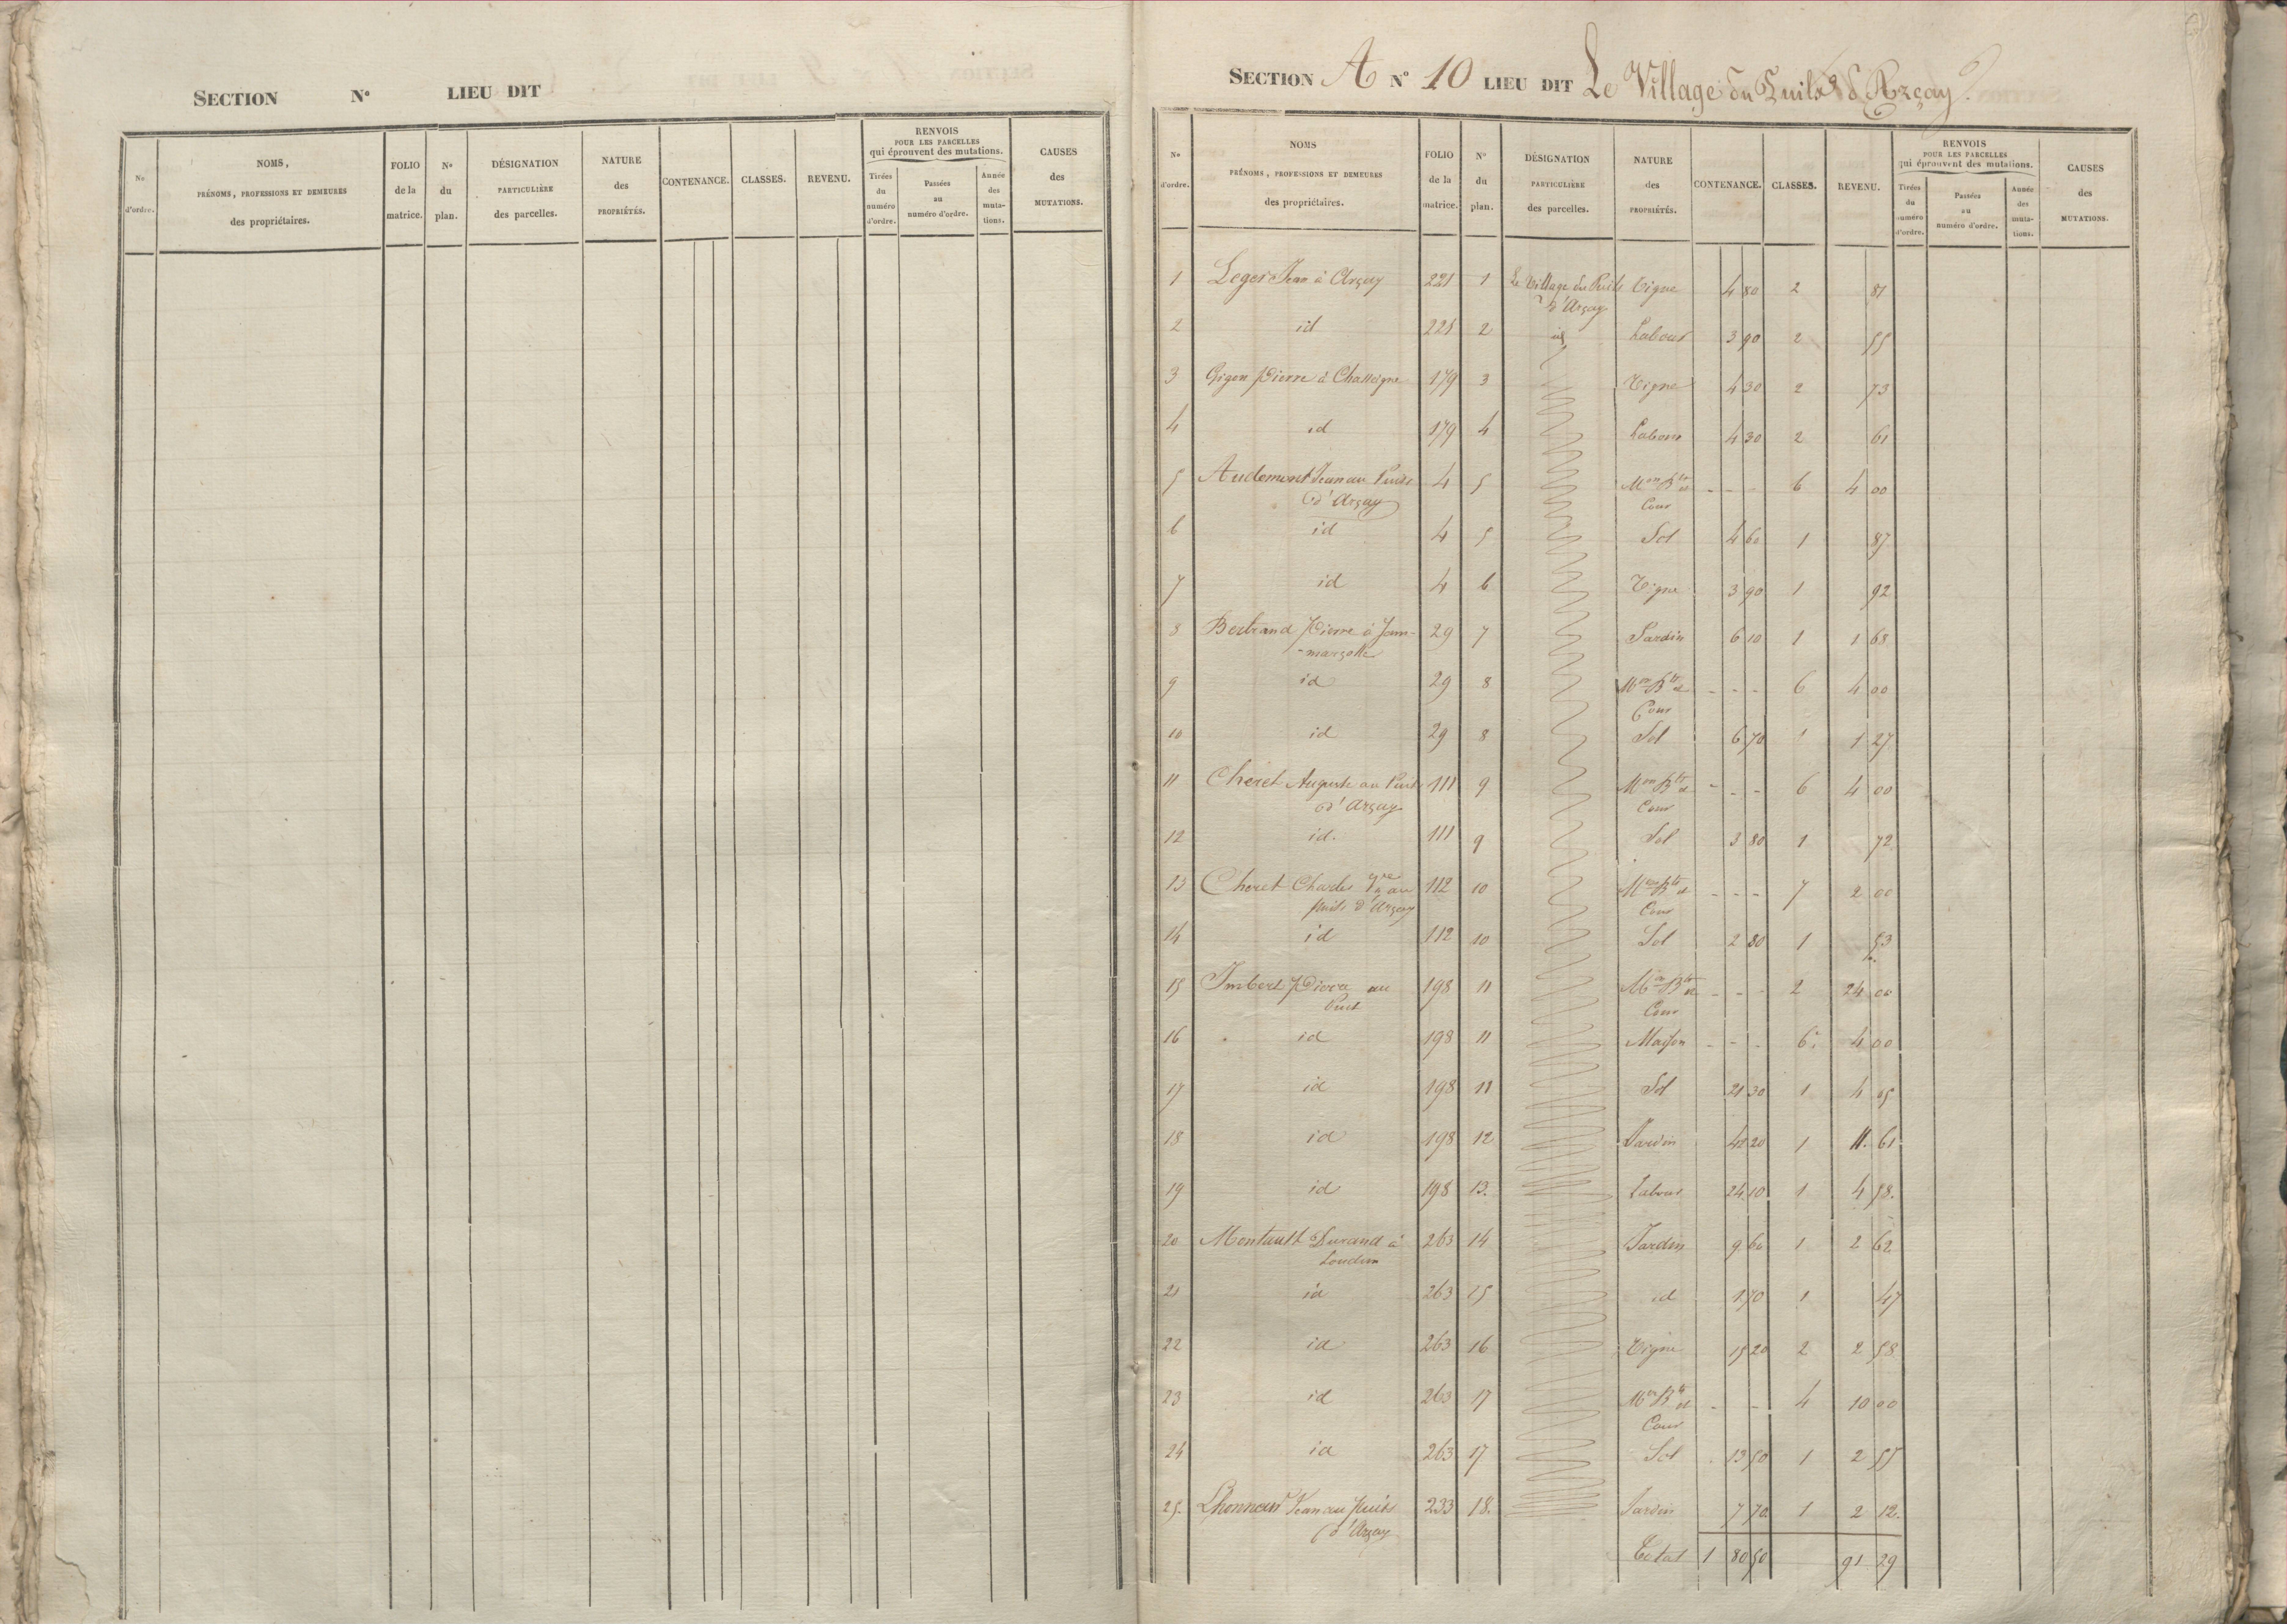 SECTION N° LIEU DIT
N° d'ordre. NOMS, PRÉNOMS, PROFESSIONS ET DEMEURES des propriétaires. FOLIO de la matrice. N° du plan. DÉSIGNATION PARTICULIÈRE des parcelles. NATURE des PROPRIÉTÉS. CONTENANCE. CLASSES. REVENU. RENVOIS POUR LES PARCELLES qui éprouvent des mutations. Tirées du numéro d'ordre. Passées au numéro d'ordre. Année des mutations. CAUSES des MUTATIONS.
SECTION A N° 10 LIEU DIT Le Village du Puits d'Arçay
N° d'ordre. NOMS PRÉNOMS, PROFESSIONS ET DEMEURES des propriétaires. FOLIO de la matrice. N° du plan. DÉSIGNATION PARTICULIÈRE des parcelles. NATURE des PROPRIÉTÉS. CONTENANCE. CLASSES. REVENU. RENVOIS POUR LES PARCELLES qui éprouvent des mutations. Tirées du numéro d'ordre. Passées au numéro d'ordre. Année des mutations. CAUSES des MUTATIONS.
1 Leger Jean à Arçay 221 1 Le Village du Puits Vigne 4 80 2 81
d'Arçay
2 id 221 2 id Labour 3 90 2 55
3 Gigon Pierre à Chasseigne 179 3 Vigne 4 30 2 73
4 id 179 4 Labour 4 30 2 61
5 Audemont Jean au Puits 4 5 Mon Bts et - - - 6 4 00
d'Arçay Cour
6 id 4 5 Sol 4 60 1 87
7 id 4 6 Vigne 3 90 1 92
8 Bertrand Pierre à Jam- 29 7 Jardin 6 10 1 1 68
-marzelle
9 id 29 8 Mon Bts et - - - 6 4 00
Cour
10 id 29 8 Sol 6 70 1 1 27
11 Cheret Auguste au Puits 111 9 Mon Bts et - - - 6 4 00
d'Arçay Cour
12 id. 111 9 Sol 3 80 1 72
13 Cheret Charles au 112 10 Mon Bts et - - - 7 2 00
puits d'Arçay Cour
14 id 112 10 Sol 2 80 1 53
15 Imbert Pierre au 198 11 Mon Bts et - - - 2 24 00
Puit Cour
16 id 198 11 Maison - - - 6. 4 00
17 id 198 11 Sol 21 30 1 4 05
18 id 198 12 Jardin 42 20 1 11. 61
19 id 198 13. Labour 24 10 1 4 58.
20 Montault Durand à 263 14 Jardin 9 60 1 2 62
Loudun
21 id 263 15 id 1 70 1 47
22 id 263 16 Vigne 15 20 2 2 58
23 id 263 17 Mon Bts et - - 4 10 00
Cour
24 id 263 17 Sol 13 50 1 2 55
25. Lhonneur Jean au Puits 233 18. Jardin 7 70 1 2 12.
d'Arçay
Total 1 80 50 91 29